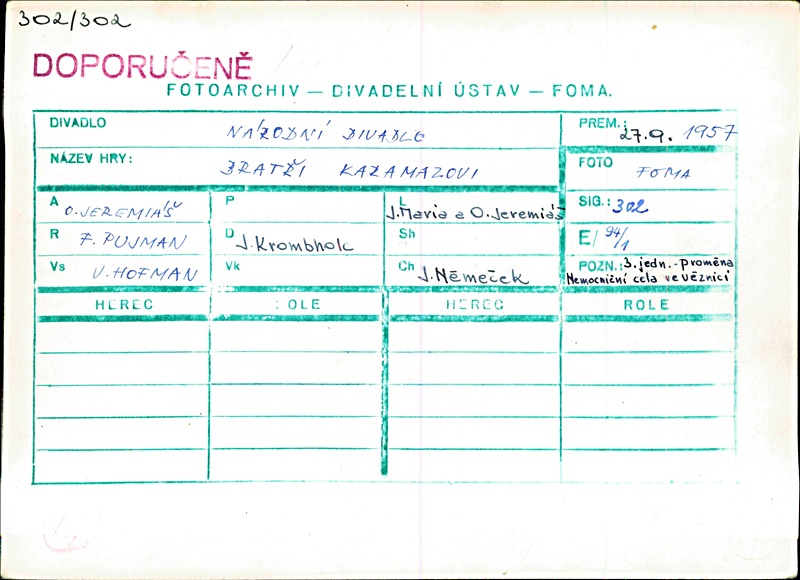 302/302
DOPORUČENĚ
FOTOARCHIV — DIVADELNÍ ÚSTAV — FOMA.
DIVADLO NÁRODNÍ DIVADLO PREM.: 27.9. 1957
NÁZEV HRY: BRATŘI KARAMAZOVI FOTO FOMA
A O. JEREMIÁŠ P L J. Maria a O. Jeremiáš SIG.: 302
R F. PUJMAN D J. Krombholc Sh E/ 94/1
Vs V. HOFMAN Vk Ch J. Němeček POZN.: 3. jedn. - proměna
Nemocniční cela ve věznici
HEREC ROLE HEREC ROLE